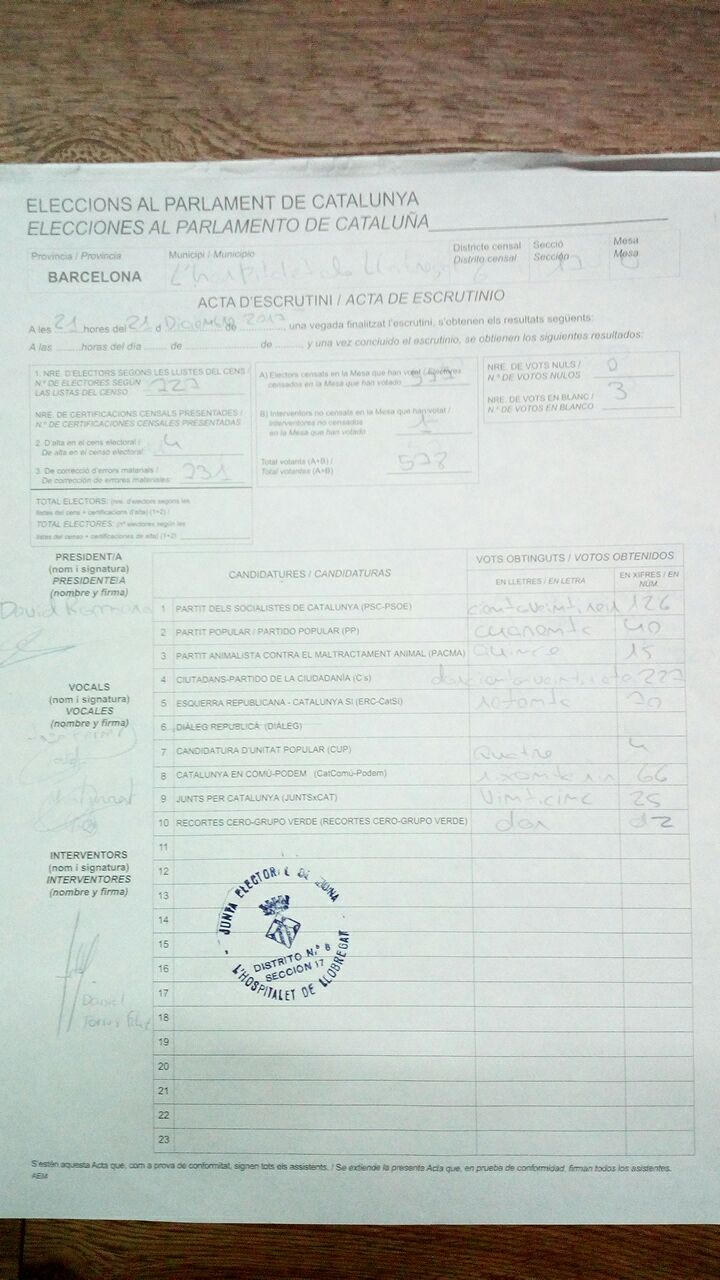 ELECCIONS AL PARLAMENT DE CATALUNYA
ELECCIONES AL PARLAMENTO DE CATALUÑA
Provincia / Provincia Municipi / Municipio Districte censal Secció Mesa
Distrito censal Sección Mesa
BARCELONA L'hospitalet de Llobregat
ACTA D'ESCRUTINI / ACTA DE ESCRUTINIO
A les 21 hores del 21 d Diciembre de 2017, una vegada finalitzat l'escrutini, s'obtenen els resultats següents:
A las ........ horas del día ........ de ........ de ........, y una vez concluido el escrutinio, se obtienen los siguientes resultados:
1. NRE. D'ELECTORS SEGONS LES LLISTES DEL CENS /
N.º DE ELECTORES SEGÚN
LAS LISTAS DEL CENSO
NRE. DE CERTIFICACIONS CENSALS PRESENTADES /
N.º DE CERTIFICACIONES CENSALES PRESENTADAS
2. D'alta en el cens electoral / 4
De alta en el censo electoral
3. De correcció d'errors materials / 231
De corrección de errores materiales
TOTAL ELECTORS: (nre. d'electors segons les
llistes del cens + certificacions d'alta) (1+2) /
TOTAL ELECTORES: (nº electores según las
listas del censo + certificaciones de alta) (1+2)
A) Electors censats en la Mesa que han votat / Electores
censados en la Mesa que han votado
B) Interventors no censats en la Mesa que han votat / 1
Interventores no censados
en la Mesa que han votado
Total votants (A+B) / 578
Total votantes (A+B)
NRE. DE VOTS NULS / 0
N.º DE VOTOS NULOS
NRE. DE VOTS EN BLANC / 3
N.º DE VOTOS EN BLANCO
PRESIDENT/A
(nom i signatura)
PRESIDENTE/A
(nombre y firma)
David
VOCALS
(nom i signatura)
VOCALES
(nombre y firma)
INTERVENTORS
(nom i signatura)
INTERVENTORES
(nombre y firma)
Daniel
CANDIDATURES / CANDIDATURAS VOTS OBTINGUTS / VOTOS OBTENIDOS
EN LLETRES / EN LETRA EN XIFRES / EN NÚM.
1 PARTIT DELS SOCIALISTES DE CATALUNYA (PSC-PSOE) 126
2 PARTIT POPULAR / PARTIDO POPULAR (PP) cuarenta 40
3 PARTIT ANIMALISTA CONTRA EL MALTRACTAMENT ANIMAL (PACMA) Quince 15
4 CIUTADANS-PARTIDO DE LA CIUDADANÍA (C's) 227
5 ESQUERRA REPUBLICANA - CATALUNYA SÍ (ERC-CatSí) setenta 70
6 DIÀLEG REPUBLICÀ (DIÀLEG)
7 CANDIDATURA D'UNITAT POPULAR (CUP) Quatre 4
8 CATALUNYA EN COMÚ-PODEM (CatComú-Podem) 66
9 JUNTS PER CATALUNYA (JUNTSxCAT) Vinticinc 25
10 RECORTES CERO-GRUPO VERDE (RECORTES CERO-GRUPO VERDE) dos
11
12
13
14
15
16
17
18
19
20
21
22
23
JUNTA ELECTORAL DE ZONA
DISTRITO N.º 6
SECCION 17
L'HOSPITALET DE LLOBREGAT
S'estén aquesta Acta que, com a prova de conformitat, signen tots els assistents. / Se extiende la presente Acta que, en prueba de conformidad, firman todos los asistentes.